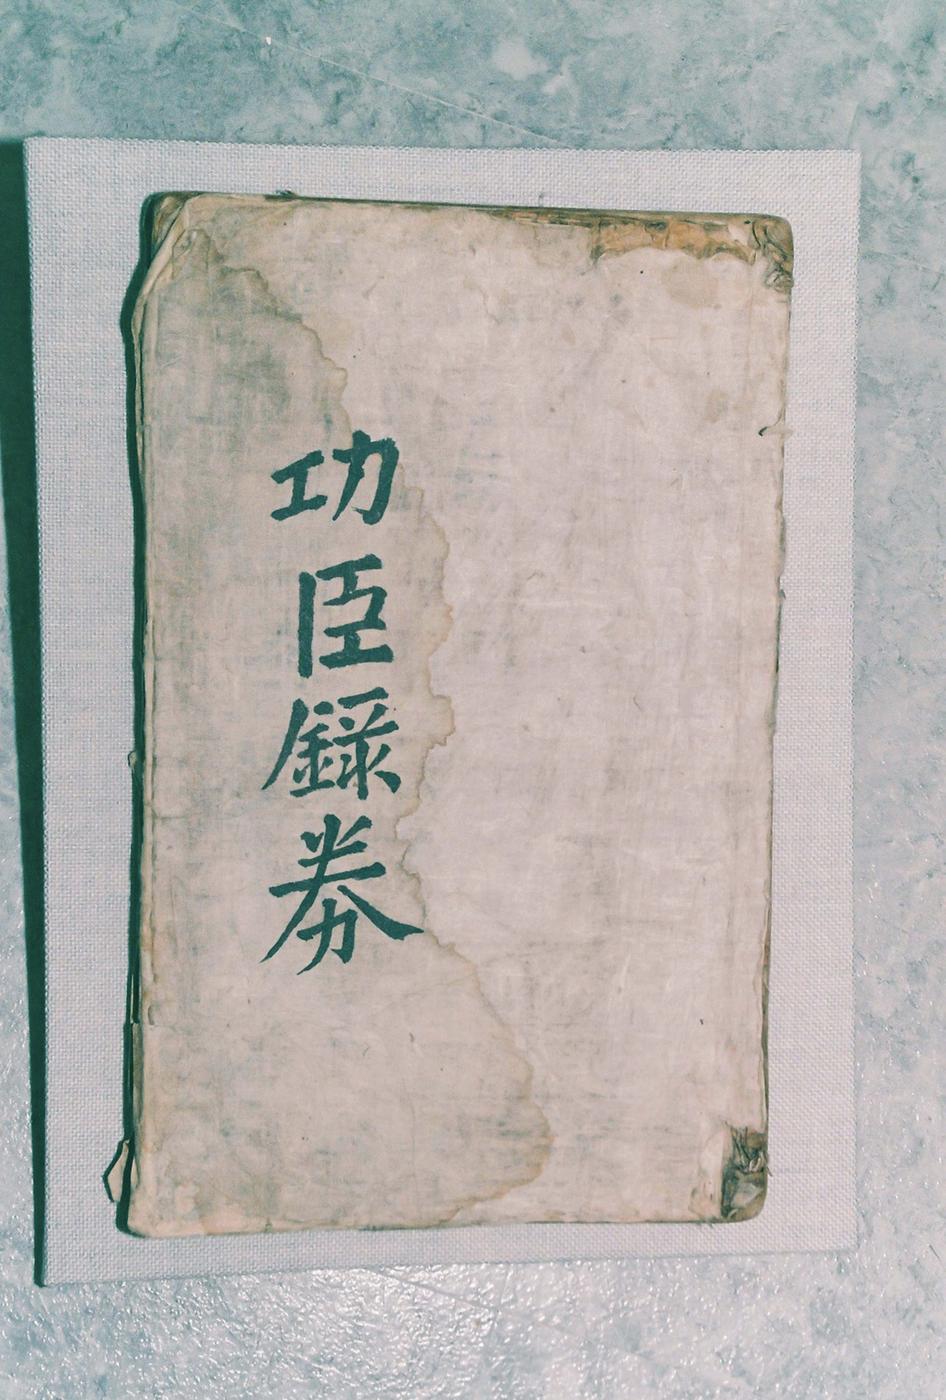 功臣錄券